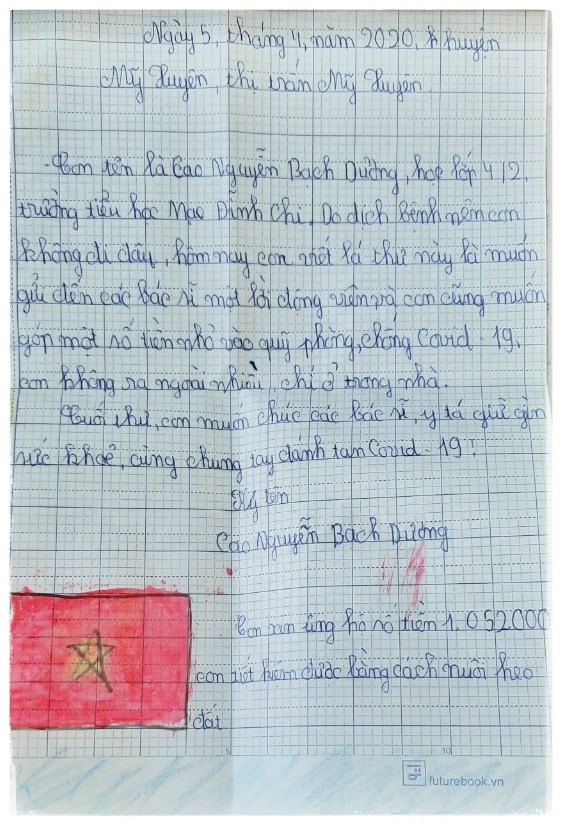 Ngày 5, tháng 4, năm 2020, huyện
Mỹ Xuyên, thị trấn Mỹ Xuyên.
Con tên là Cao Nguyễn Bạch Dương, học lớp 4/2,
trường tiểu học Mạc Đỉnh Chi, Do dịch bệnh nên con
không đi đây, hôm nay con viết lá thư này là muốn
gửi đến các bác sĩ một lời động viên và con cũng muốn
góp một số tiền nhỏ vào quỹ phòng, chống Covid - 19,
con không ra ngoài nhiều, chỉ ở trong nhà.
Cuối thư, con muốn chúc các bác sĩ, y tá giữ gìn
sức khoẻ, cùng chung tay đánh tan Covid - 19!
Ký tên
Cao Nguyễn Bạch Dương
Con xin ủng hộ số tiền 1.052000
con tiết kiệm được bằng cách nuôi heo
đất
5 10
futurebook.vn